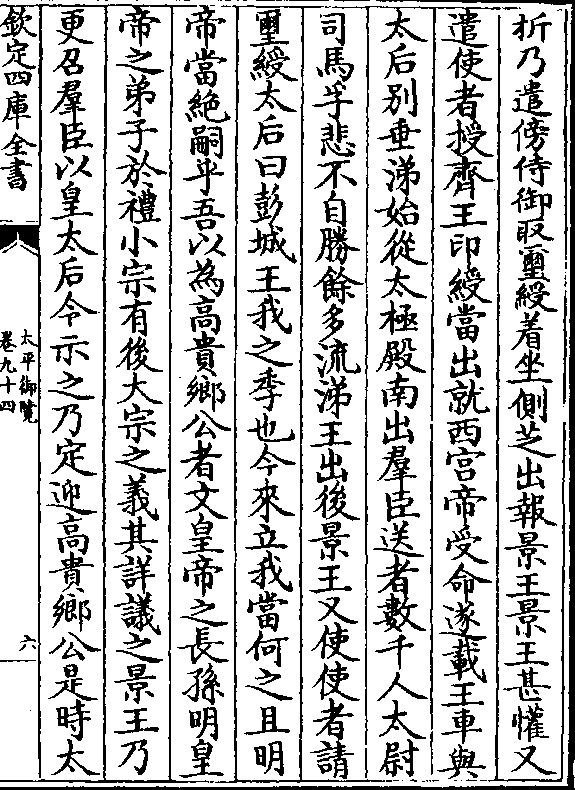 折乃遣傍侍御取璽綬着坐側芝出報景王景王甚懽又
遣使者授齊王印綬當出就西宫帝受命遂載王車與
太后别垂涕始從太極殿南出羣臣送者數千人太尉
司馬孚悲不自勝餘多流涕王出後景王又使使者請
璽綬太后曰彭城王我之季也今來立我當何之且明
帝當絶嗣乎吾以為高貴鄉公者文皇帝之長孫明皇
帝之弟子於禮小宗有後大宗之義其詳議之景王乃
更召羣臣以皇太后令示之乃定迎高貴鄉公是時太
欽定四庫全書
太平御覽
卷九十四
六